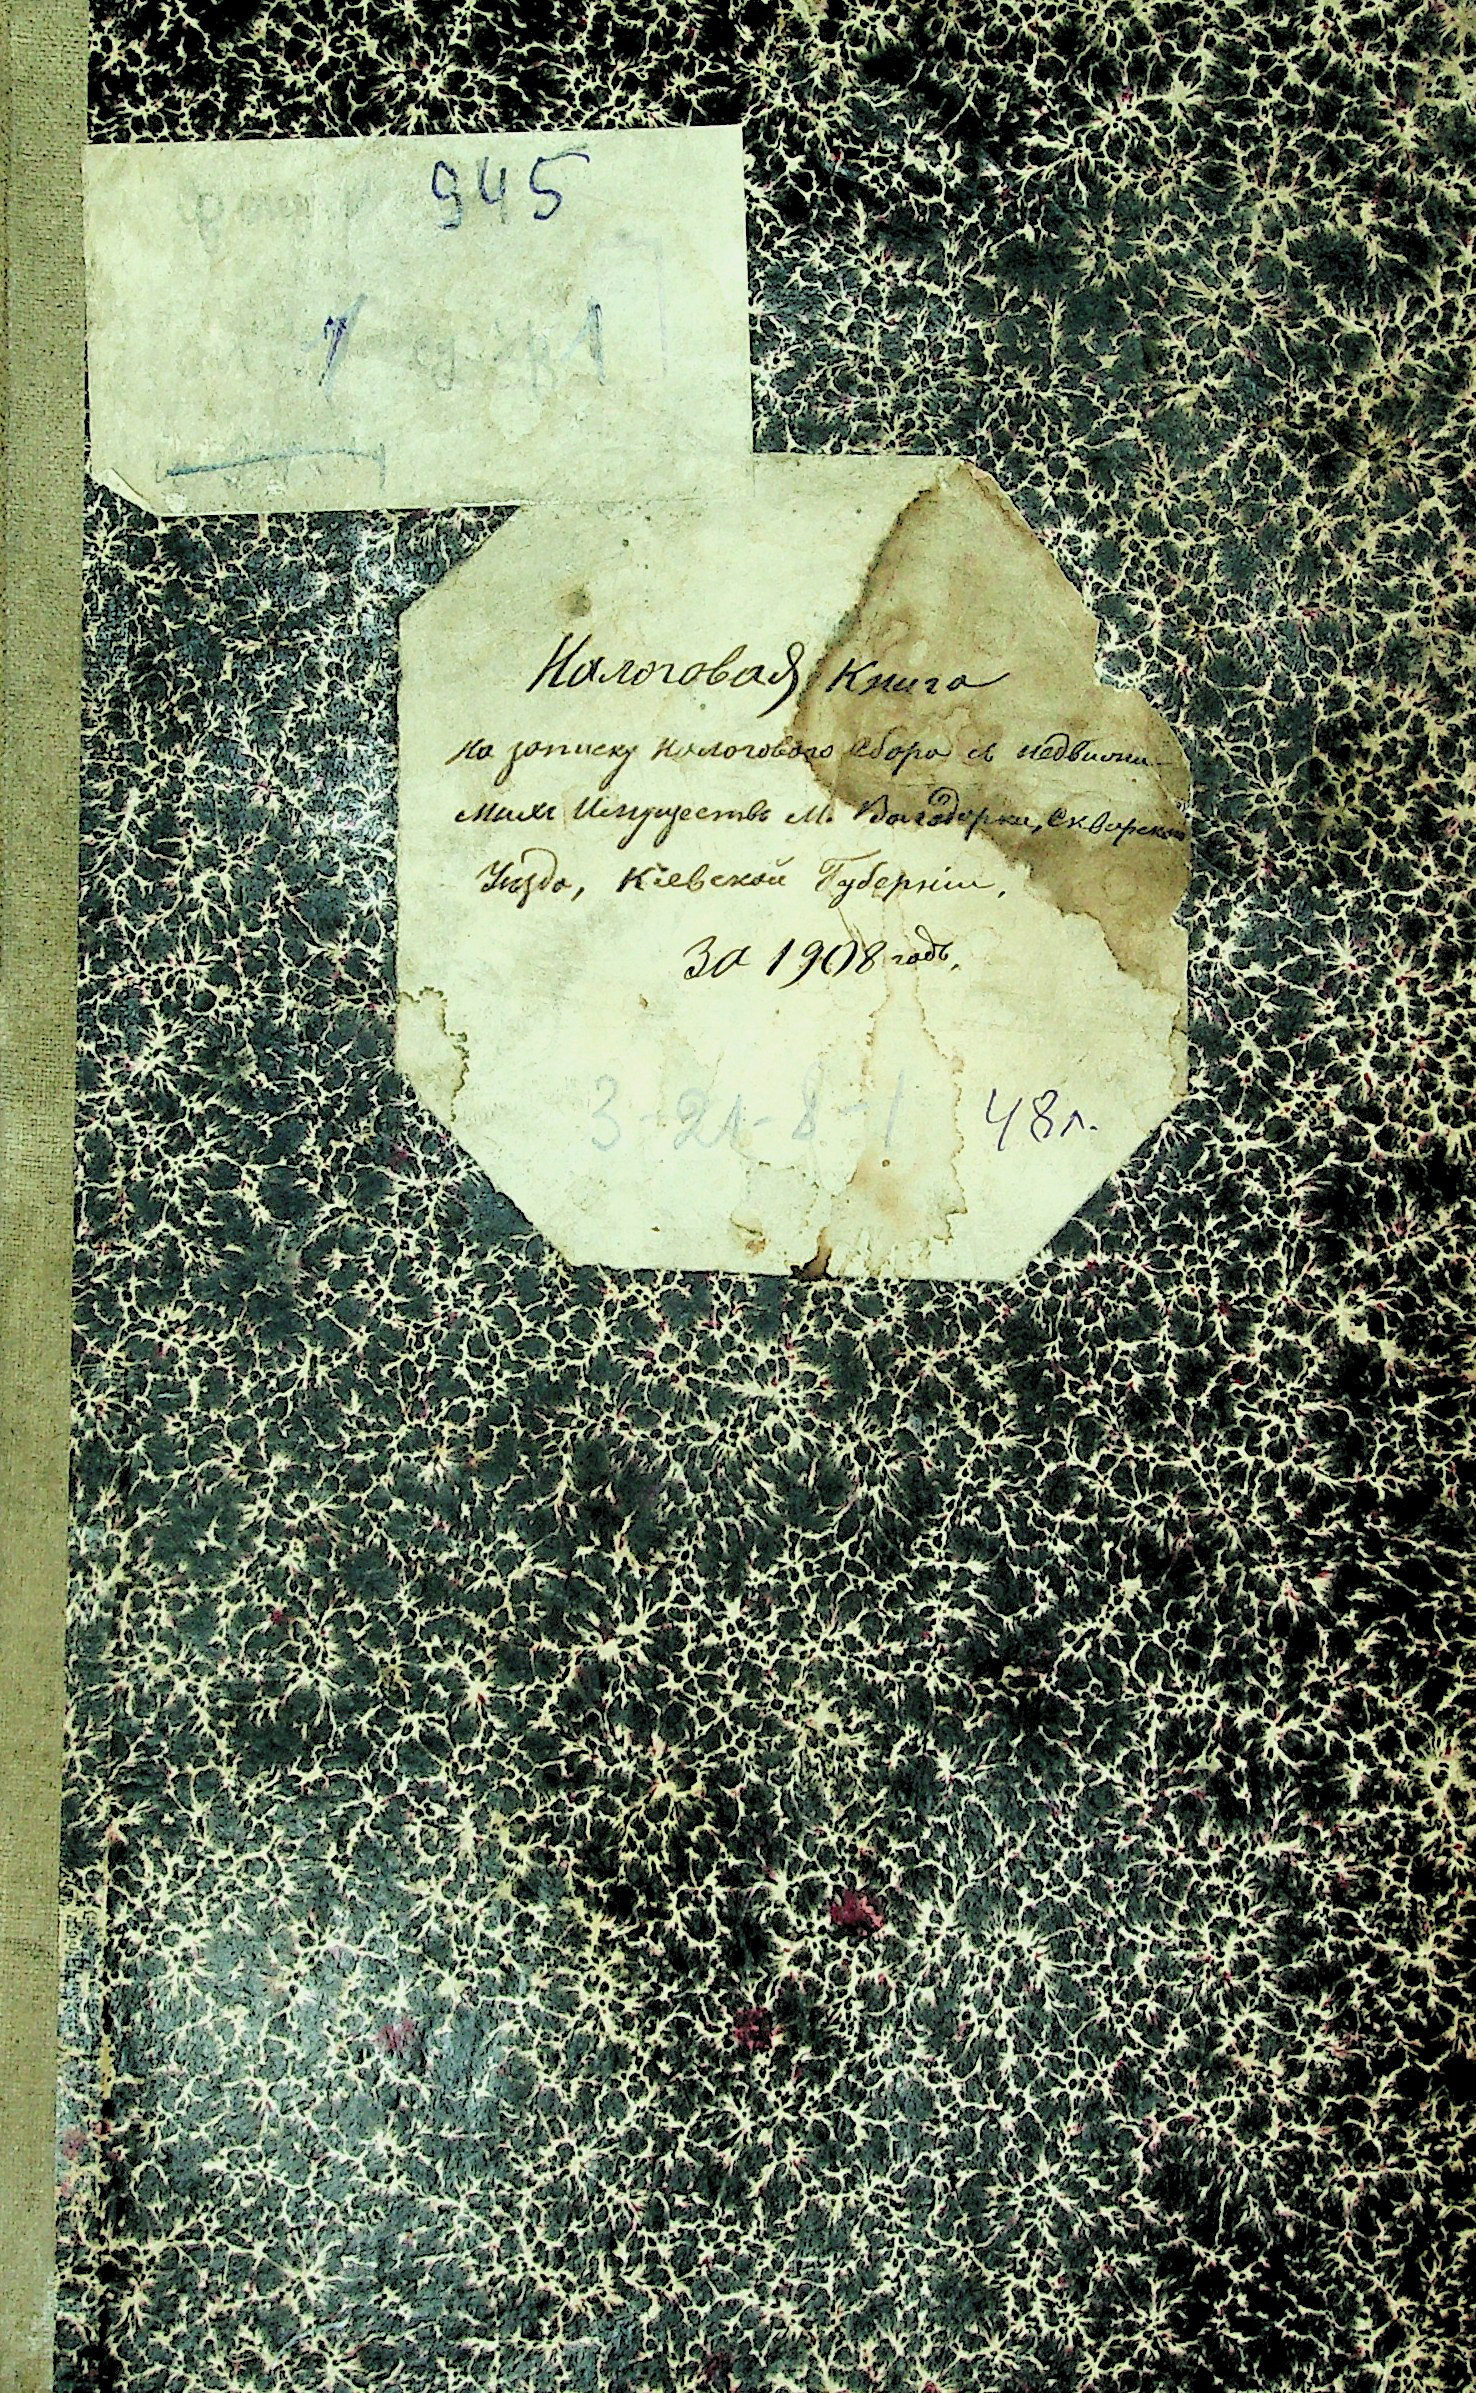 фонд 945
оп. 1 ед. хр. 1
Налоговая Книга
на записку налогового сбора съ недвижи-
мыхъ Имуществъ М. Володарки, Сквирскаго
Уѣзда, Кіевской Губерніи,
За 1908 годъ.
3-21-8-1 48л.